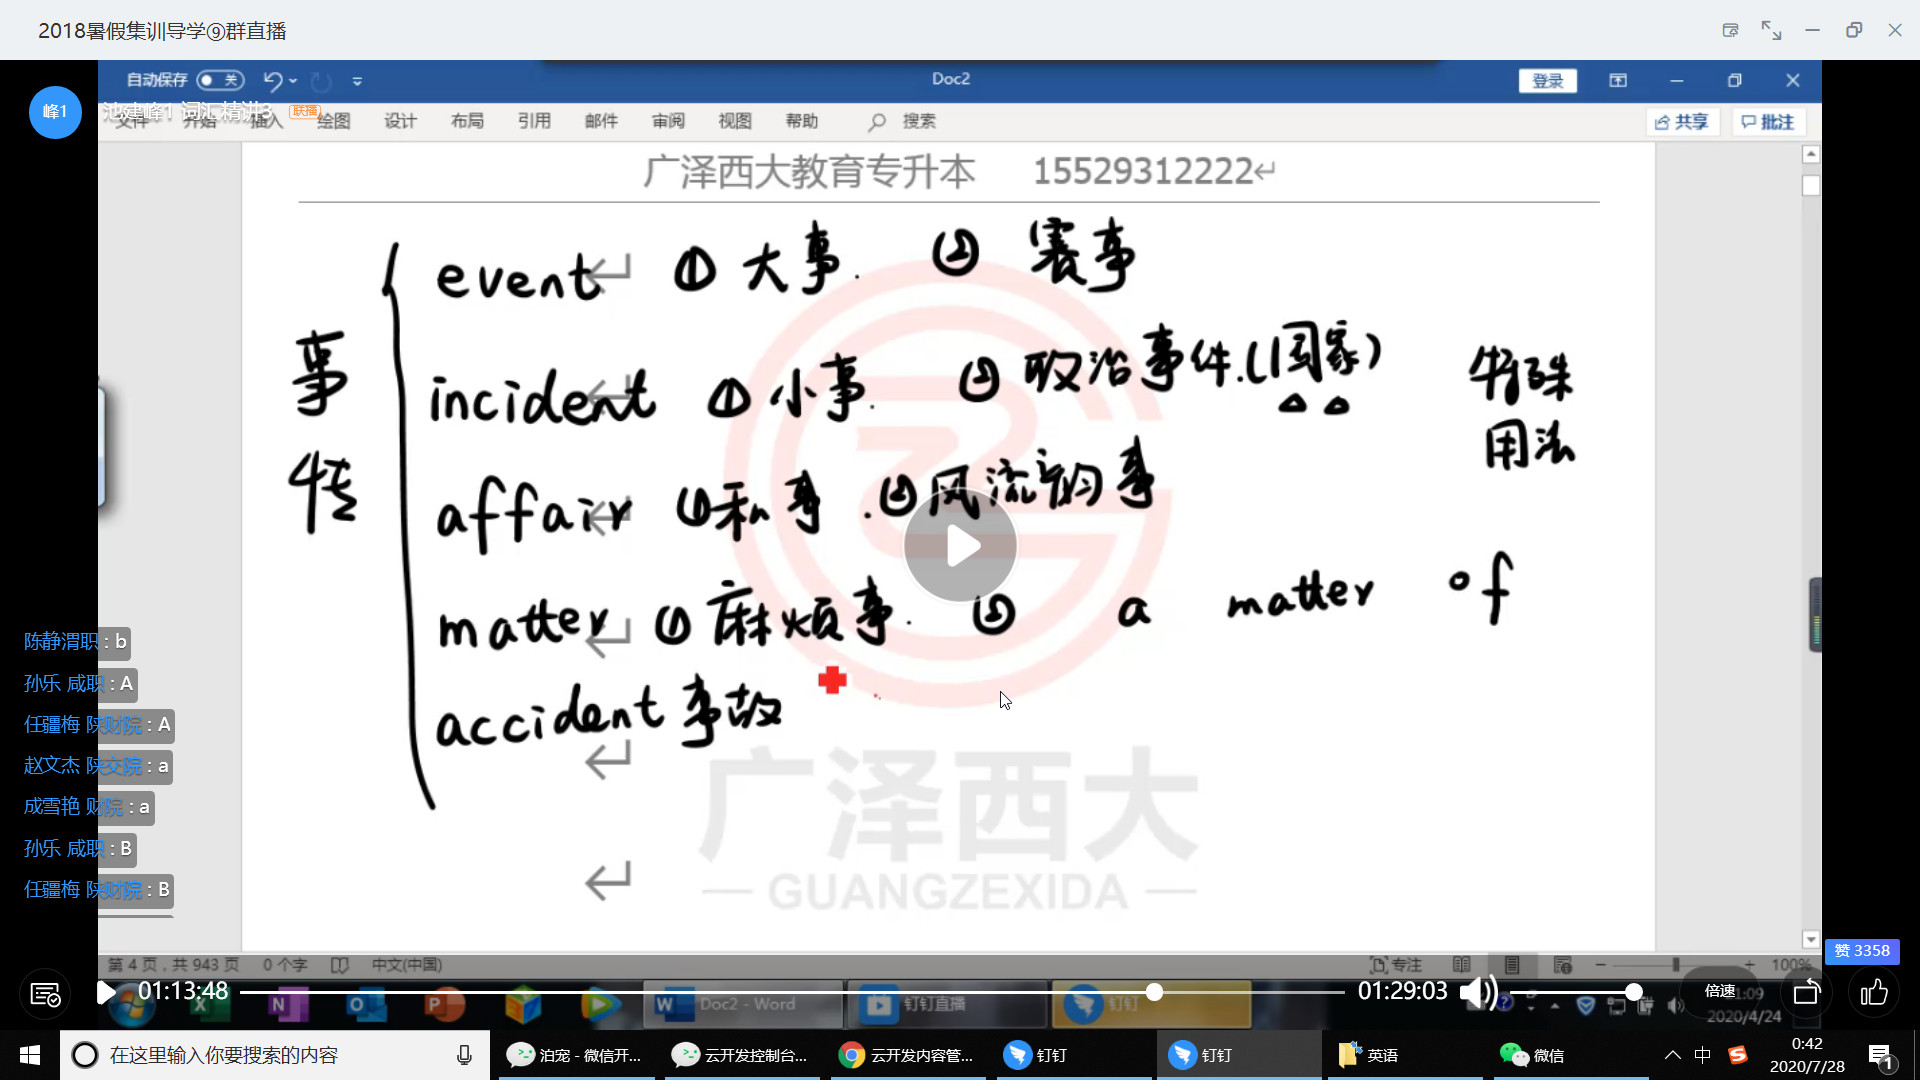 2018暑假集训导学⑨群直播
自动保存 关 Doc2 登录
峰1 池建峰1 词汇精讲3 联播
文件 开始 插入 绘图 设计 布局 引用 邮件 审阅 视图 帮助 搜索 共享 批注
广泽西大教育专升本 15529312222↵
事情
event ① 大事. ② 赛事
incident ① 小事. ② 政治事件.(国家)
特殊
用法
affair ① 私事. ② 风流韵事
matter ① 麻烦事. ② a matter of
accident 事故
广泽西大
— GUANGZEXIDA —
陈静渭职 : b
孙乐 咸职 : A
任疆梅 陕财院 : A
赵文杰 陕交院 : a
成雪艳 财院 : a
孙乐 咸职 : B
任疆梅 陕财院 : B
赞 3358
第 4 页，共 943 页 0 个字 中文(中国) 专注 100%
01:13:48 01:29:03 倍速
Doc2 - Word 钉钉直播 钉钉
2020/4/24
在这里输入你要搜索的内容
泊宠 - 微信开... 云开发控制台... 云开发内容管... 钉钉 钉钉 英语 微信 中
0:42
2020/7/28
1